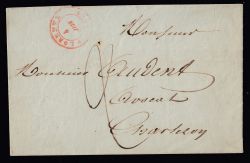 Monsieur
Monsieur Prudent
Avocat
Charleroy